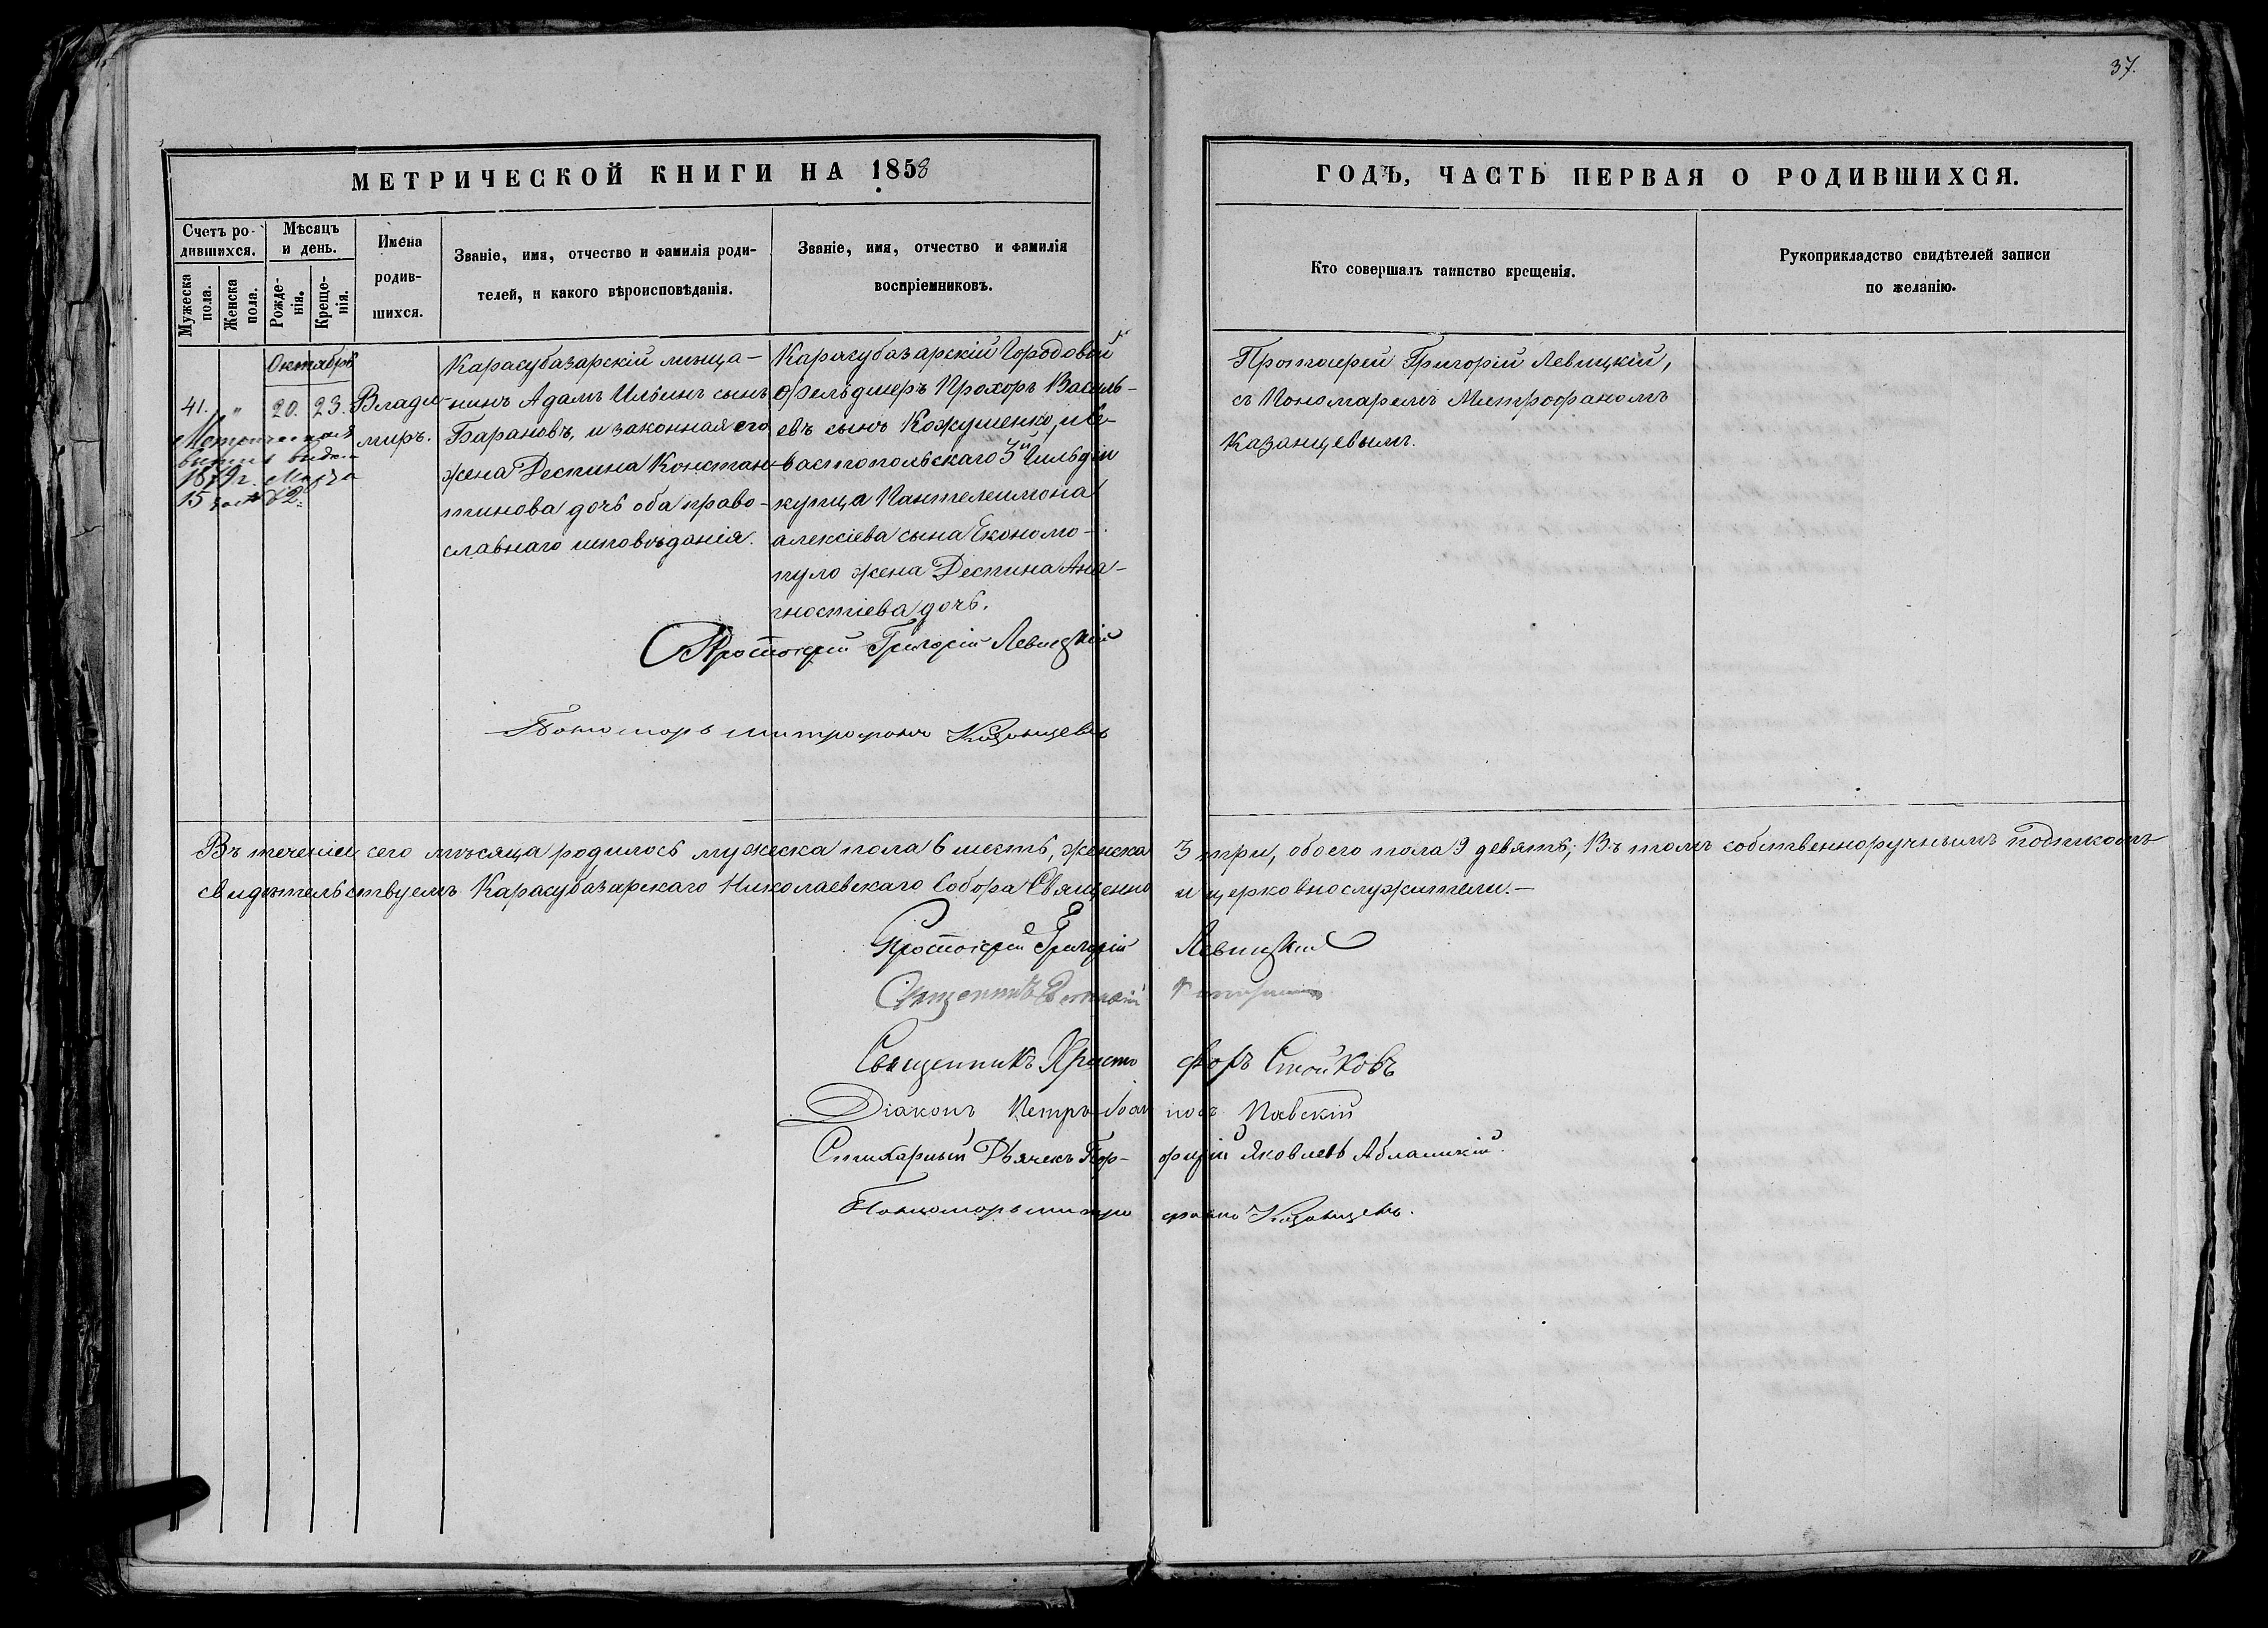 37.
МЕТРИЧЕСКОЙ КНИГИ НА 1858
ГОДЪ, ЧАСТЬ ПЕРВАЯ О РОДИВШИХСЯ.
Счетъ ро-
дившихся.
Мужеска
пола.
Женска
пола.
Мѣсяцъ
и день.
Рожде-
нія.
Креще-
нія.
Имена
родив-
шихся.
Званіе, имя, отчество и фамилія роди-
телей, и какого вѣроисповѣданія.
Званіе, имя, отчество и фамилія
воспріемниковъ.
Кто совершалъ таинство крещенія.
Рукоприкладство свидѣтелей записи
по желанію.
Октябрь
41. " 20. 23.
1879 г. Марта
15
Влади-
міръ.
Карасубазарскій мѣща-
нинъ Адамъ Ильинъ сынъ
Барановъ, и законная его
жена Деспина Констан-
тинова дочь оба право-
славнаго исповѣданія.
Карасубазарскій Городовой
Фельдшеръ Прохоръ Василь-
евъ сынъ Кожушенко, и Се-
вастопольскаго 3й Гильдіи
купца Пантелеимона
алексіева сына Економо-
пуло жена Деспина Ана-
гностіева дочь.
Протоіерей Григорій Левицкій
Пономарь Митрофанъ Казанцевъ
Протоіерей Григорій Левицкій,
съ Пономаремъ Митрофаномъ
Казанцевымъ.
Въ теченіи сего мѣсяца родилось мужеска пола 6 шесть, женска 3 три, обоего пола 9 девять; Въ томъ собственноручнымъ подпискомъ
свидѣтельствуемъ Карасубазарскаго Николаевскаго Собора Священно и церковнослужители.—
Протоіерей Григорій Левицкій
Священникъ
Священникъ Христофоръ Стойковъ
Діаконъ Петръ Іоанновъ Паевскій
Стихарный Дьячекъ Порфирій Яковлевъ Абламскій.
Пономарь Митрофанъ Казанцевъ.